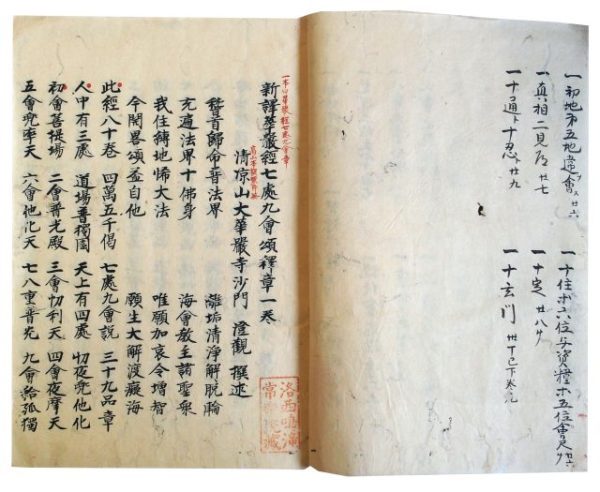 一初地第五地違會 廿六
一真相二見道 廿七
一十通十忍 廿九
一十住ホ六位与資糧ホ五位會
一十定 廿八
一十玄門
一本云華嚴經七處九會章
新譯華嚴經七處九會頌釋章一卷
清凉山大華嚴寺沙門 澄觀 撰述
稽首歸命普法界 離垢清淨解脫輪
充遍法界十佛身 海會教主諸聖衆
我住轉地悕大法 唯願加哀令增智
今開畧頌益自他 願生大解渡癡海
此經八十卷 四萬五千偈 七處九會說 三十九品章
人中有三處 道場普獨園 天上有四處 忉夜兜他化
初會菩提場 二會普光殿 三會忉利天 四會夜摩天
五會兜率天 六會他化天 七八重普光 九會給孤獨
洛西鳴瀧